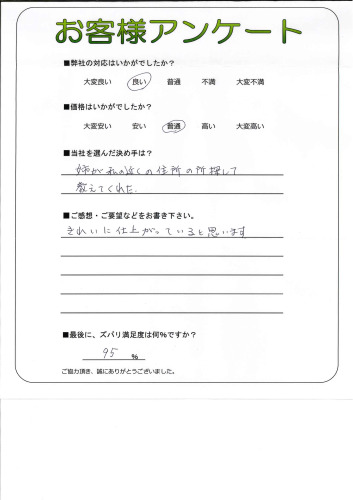 お客様アンケート
■弊社の対応はいかがでしたか？
大変良い 良い 普通 不満 大変不満
■価格はいかがでしたか？
大変安い 安い 普通 高い 大変高い
■当社を選んだ決め手は？
姉が私の近くの住所の所探して
教えてくれた.
■ご感想・ご要望などをお書き下さい。
きれいに仕上がっていると思います
■最後に、ズバリ満足度は何%ですか？
95 %
ご協力頂き、誠にありがとうございました。